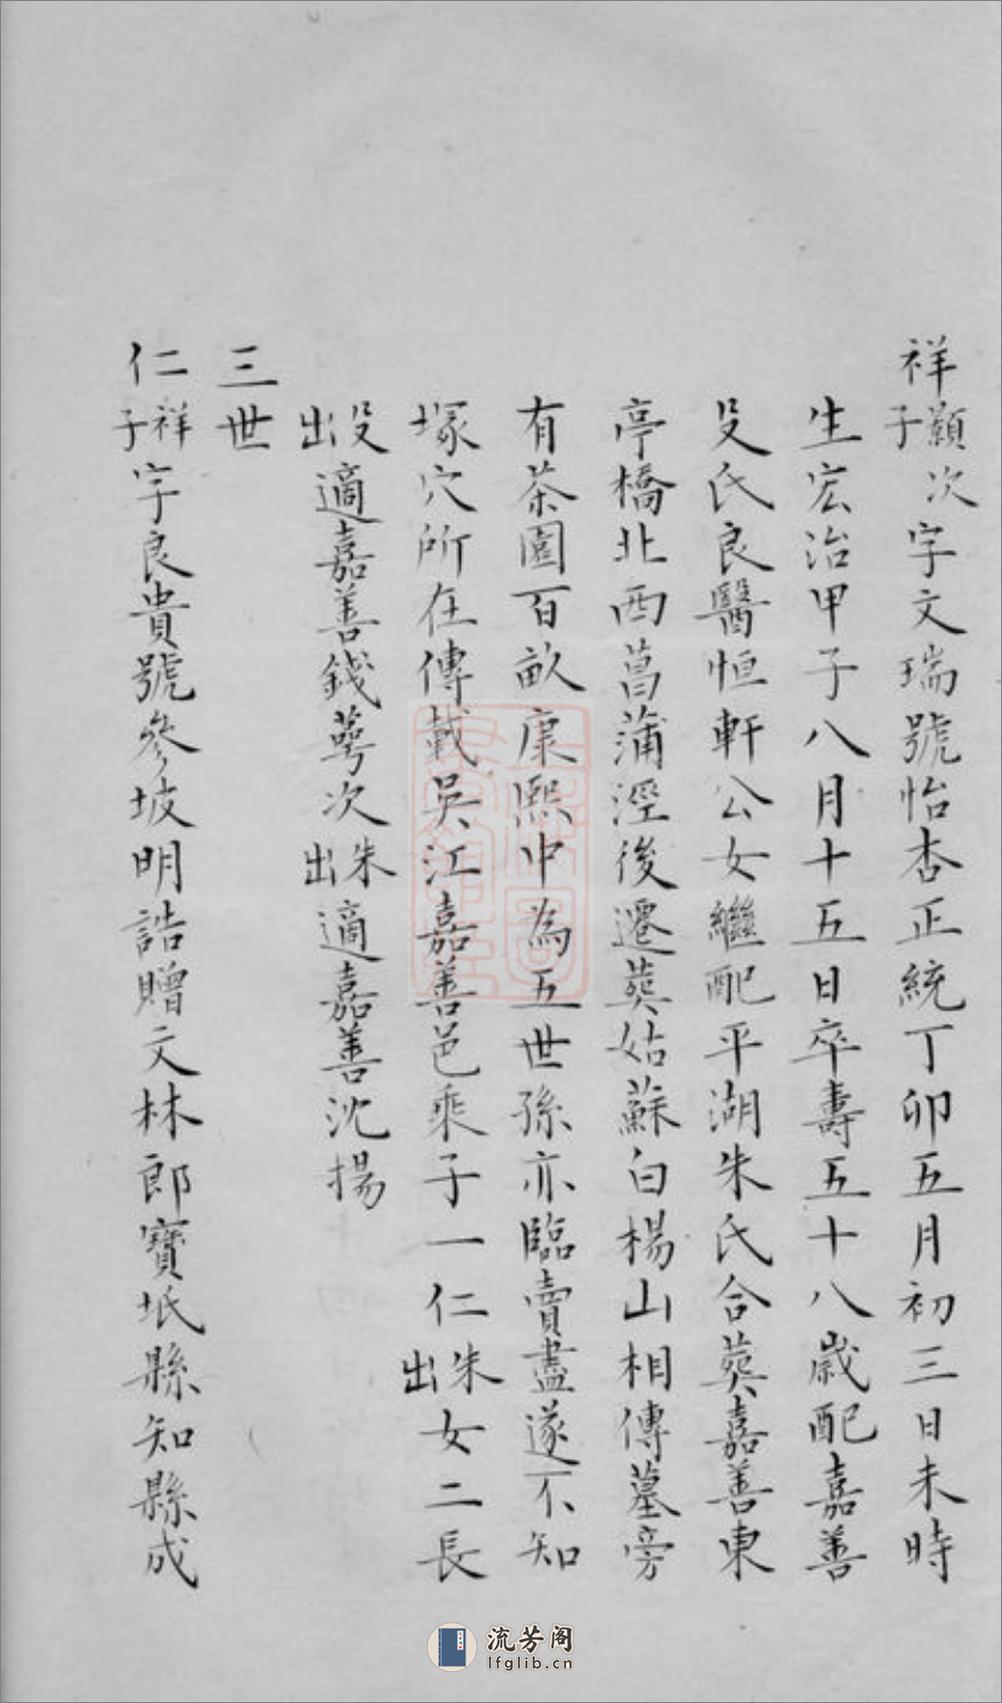 祥顥次子字文瑞號怡杏正統丁卯五月初三日未時
生宏治甲子八月十五日卒壽五十八歲配嘉善
殳氏良醫恒軒公女繼配平湖朱氏合葬嘉善東
亭橋北西菖蒲涇後遷葬姑蘇白楊山相傳墓旁
有茶園百畝康熙中為五世孫亦臨賣盡遂不知
塚穴所在傳載吳江嘉善邑乘子一仁朱出女二長
殳出適嘉善錢萼次朱出適嘉善沈揚
三世
仁祥子字良貴號參坡明誥贈文林郎寶坻縣知縣成
流芳阁
lfglib.cn